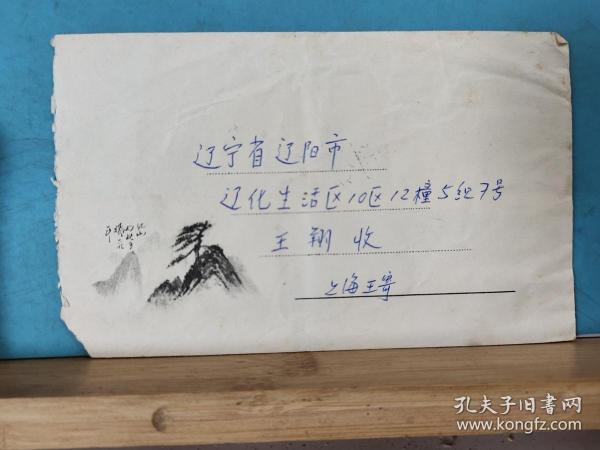 辽宁省辽阳市
辽化生活区10区12橦5组7号
王翔收
上海王寄
孔夫子旧书网
www.kongfz.com